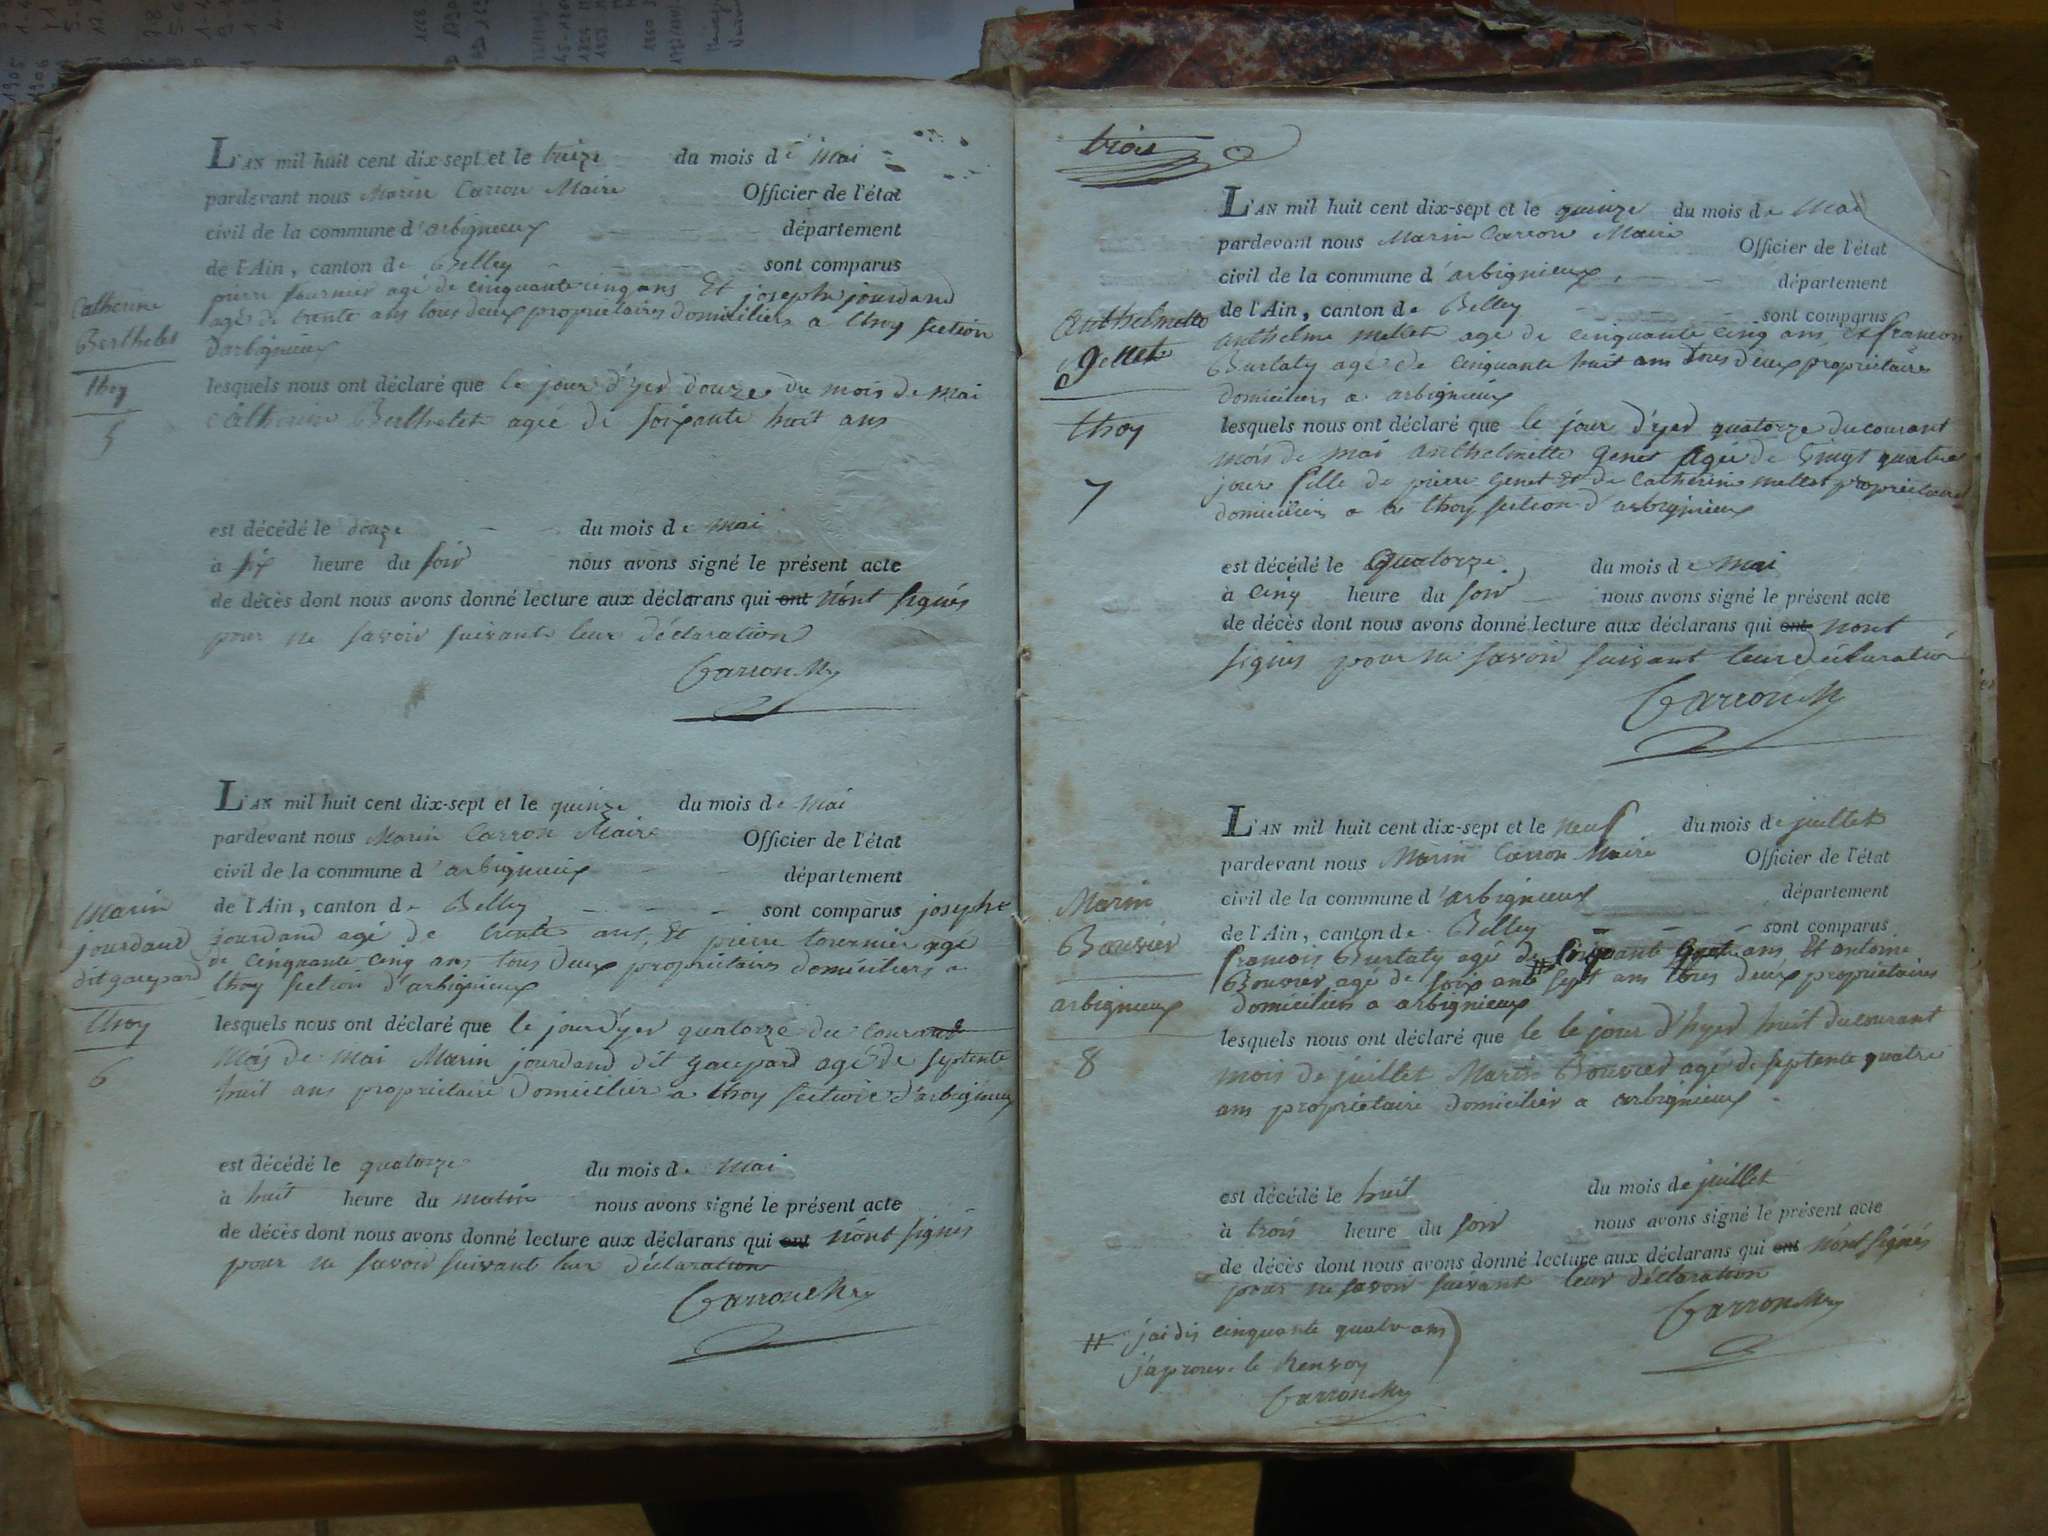 L'AN mil huit cent dix-sept et le treize du mois de mai
pardevant nous Marin Carron Maire Officier de l'état
civil de la commune d'arbignieux département
de l'Ain, canton de Belley sont comparus
pierre fournier agé de cinquante cinq ans Et joseph jourdand
agé de trente ans tous deux proprietaires domiciliers a thoy section
d'arbignieux
Catherine
Berthelet
thoy
5
lesquels nous ont déclaré que le jour d'yer douze du mois de mai
Catherine Berthelet agée de soixante huit ans
est décédé le douze du mois de mai
à six heure du soir nous avons signé le présent acte
de décès dont nous avons donné lecture aux déclarans qui ont n'ont signés
pour ne savoir suivant leur déclaration
Carron
L'AN mil huit cent dix-sept et le quinze du mois de mai
pardevant nous Marin Carron Maire Officier de l'état
civil de la commune d'arbignieux département
de l'Ain, canton de Belley sont comparus joseph
jourdand agé de trente ans, Et pierre agé
de cinquante cinq ans tous deux proprietaires domiciliers a
thoy section d'arbignieux
Marin
jourdand
dit gaspard
thoy
6
lesquels nous ont déclaré que le jour d'yer quatorze du courant
mois de mai Marin jourdand dit gaspard agé de septente
huit ans proprietaire domicilier a thoy section d'arbignieux
est décédé le quatorze du mois de mai
à huit heure du matin nous avons signé le présent acte
de décès dont nous avons donné lecture aux déclarans qui ont n'ont signés
pour ne savoir suivant leur déclaration
Carron
trois
L'AN mil huit cent dix-sept et le quinze du mois de mai
pardevant nous Marin Carron Maire Officier de l'état
civil de la commune d'arbignieux, département
de l'Ain, canton de Belley sont comparus
anthelme mellet agé de cinquante cinq ans, et francois
Burtaty agé de cinquante huit ans tous deux proprietaires
domiciliers a arbignieux
Anthelmette
thoy
7
lesquels nous ont déclaré que le jour d'yer quatorze du courant
mois de mai anthelmette genet agée de vingt quatre
jours fille de pierre genet et de Catherine mellet proprietaires
domiciliers a thoy section d'arbignieux
est décédé le quatorze du mois de mai
à cinq heure du soir nous avons signé le présent acte
de décès dont nous avons donné lecture aux déclarans qui ont n'ont
signés pour ne savoir suivant leur déclaration
Carron
L'AN mil huit cent dix-sept et le neuf du mois de juillet
pardevant nous Marin Carron Maire Officier de l'état
civil de la commune d'arbignieux département
de l'Ain, canton de Belley sont comparus
francois Burtaty agé de ans Et antoine
Bouvier agé de soixante sept ans tous deux proprietaires
domiciliers a arbignieux
Marin
Bouvier
arbignieux
8
lesquels nous ont déclaré que le le jour d'hyer huit du courant
mois de juillet Marin Bouvier agé de septente quatre
ans proprietaire domicilier a arbignieux
est décédé le huit du mois de juillet
à trois heure du soir nous avons signé le présent acte
de décès dont nous avons donné lecture aux déclarans qui ont n'ont signés
pour ne savoir suivant leur déclaration
Carron
# jai dis cinquante quatre ans
j'aprouve le Renvoy
Carron